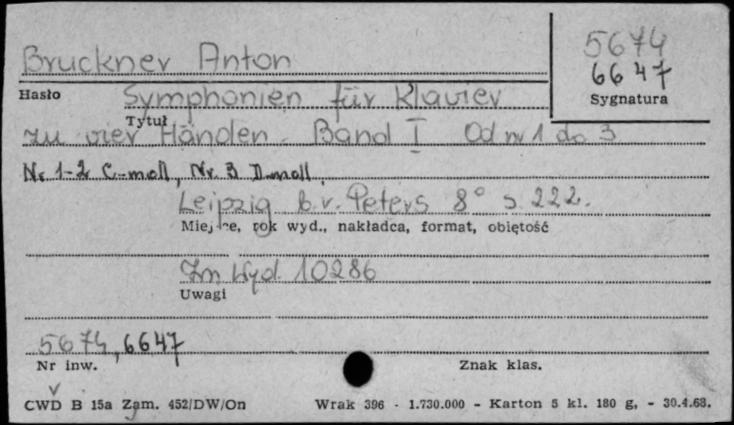 Bruckner Anton
5674
6647
Hasło
Sygnatura
Symphonien für Klavier
Tytuł
zu vier Händen. Band I Od nr 1 do 3
Nr. 1-2 C-moll, Nr. 3 D-moll.
Leipzig b.r. Peters 8° s. 222.
Miejsce, rok wyd., nakładca, format, objętość
Zn. Wyd. 10286
Uwagi
5674, 6647
Nr inw.
Znak klas.
CWD B 15a Zam. 452/DW/On Wrak 396 - 1.730.000 - Karton 5 kl. 180 g, - 30.4.68.